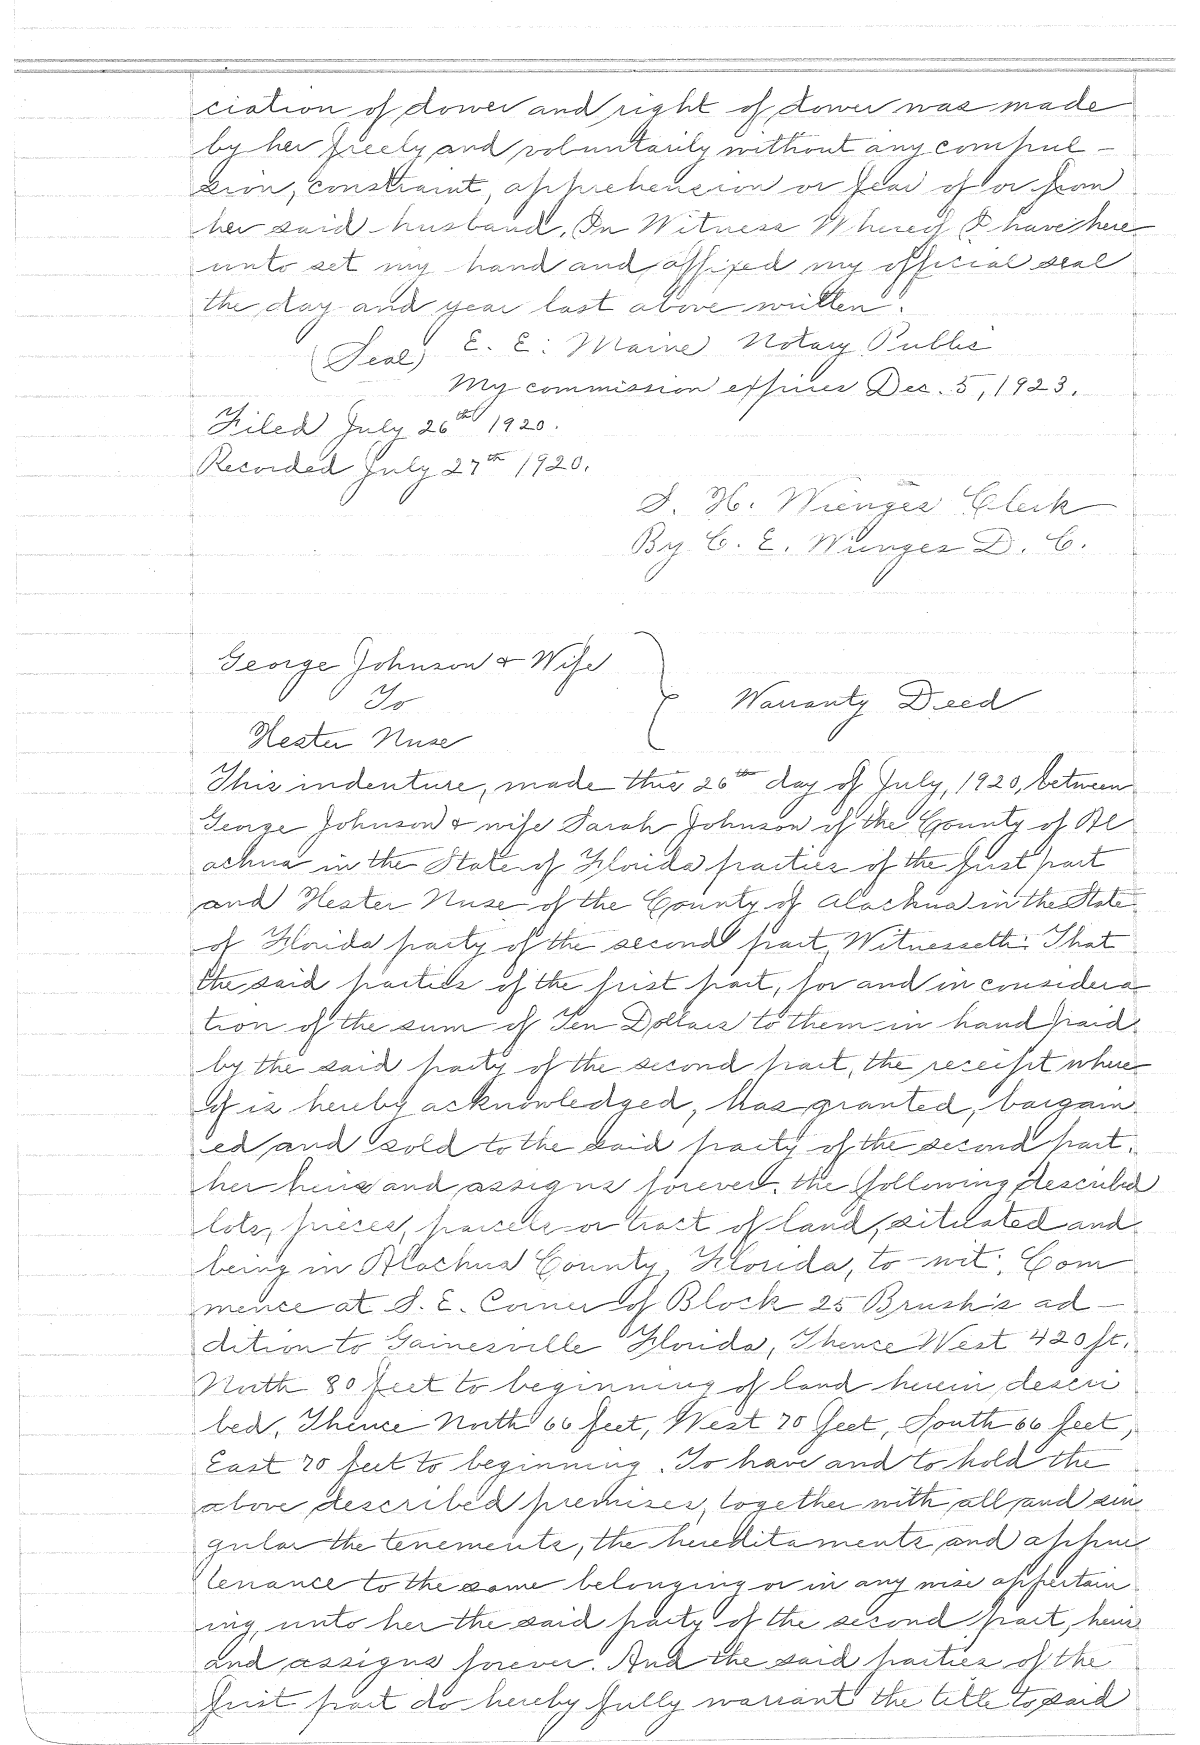 ciation of dower and right of dower was made
by her freely and voluntarily without any compul-
sion, constraint, apprehension or fear of or from
her said husband. In Witness Whereof I have here
unto set my hand and affixed my official seal
the day and year last above written.
(Seal) E. E. Maine Notary Public
My commission expires Dec. 5, 1923.
Filed July 26th 1920.
Recorded July 27th 1920.
S. H. Wienges Clerk
By C. E. Wienges D. C.
George Johnson & Wife
To
Warranty Deed
Hester Nuse
This indenture, made this 26th day of July, 1920, between
George Johnson & wife Sarah Johnson of the County of Al
achua in the State of Florida parties of the first part
and Hester Nuse of the County of Alachua in the State
of Florida party of the second part, Witnesseth: That
the said parties of the first part, for and in considera
tion of the sum of Ten Dollars to them in hand paid
by the said party of the second part, the receipt where
of is hereby acknowledged, has granted, bargain
ed and sold to the said party of the second part,
her heirs and assigns forever, the following described
lots, pieces, parcels or tract of land, situated and
being in Alachua County, Florida, to-wit; Com
mence at S. E. Corner of Block 25 Brush's ad-
dition to Gainesville Florida, Thence West 420 ft.
North 80 feet to beginning of land herein descri
bed, Thence North 66 feet, West 70 feet, South 66 feet,
East 70 feet to beginning. To have and to hold the
above described premises, together with all and sin
gular the tenements, the hereditaments and appur
tenance to the same belonging or in any wise appertain
ing, unto her the said party of the second part, heirs
and assigns forever. And the said parties of the
first part do hereby fully warrant the title to said